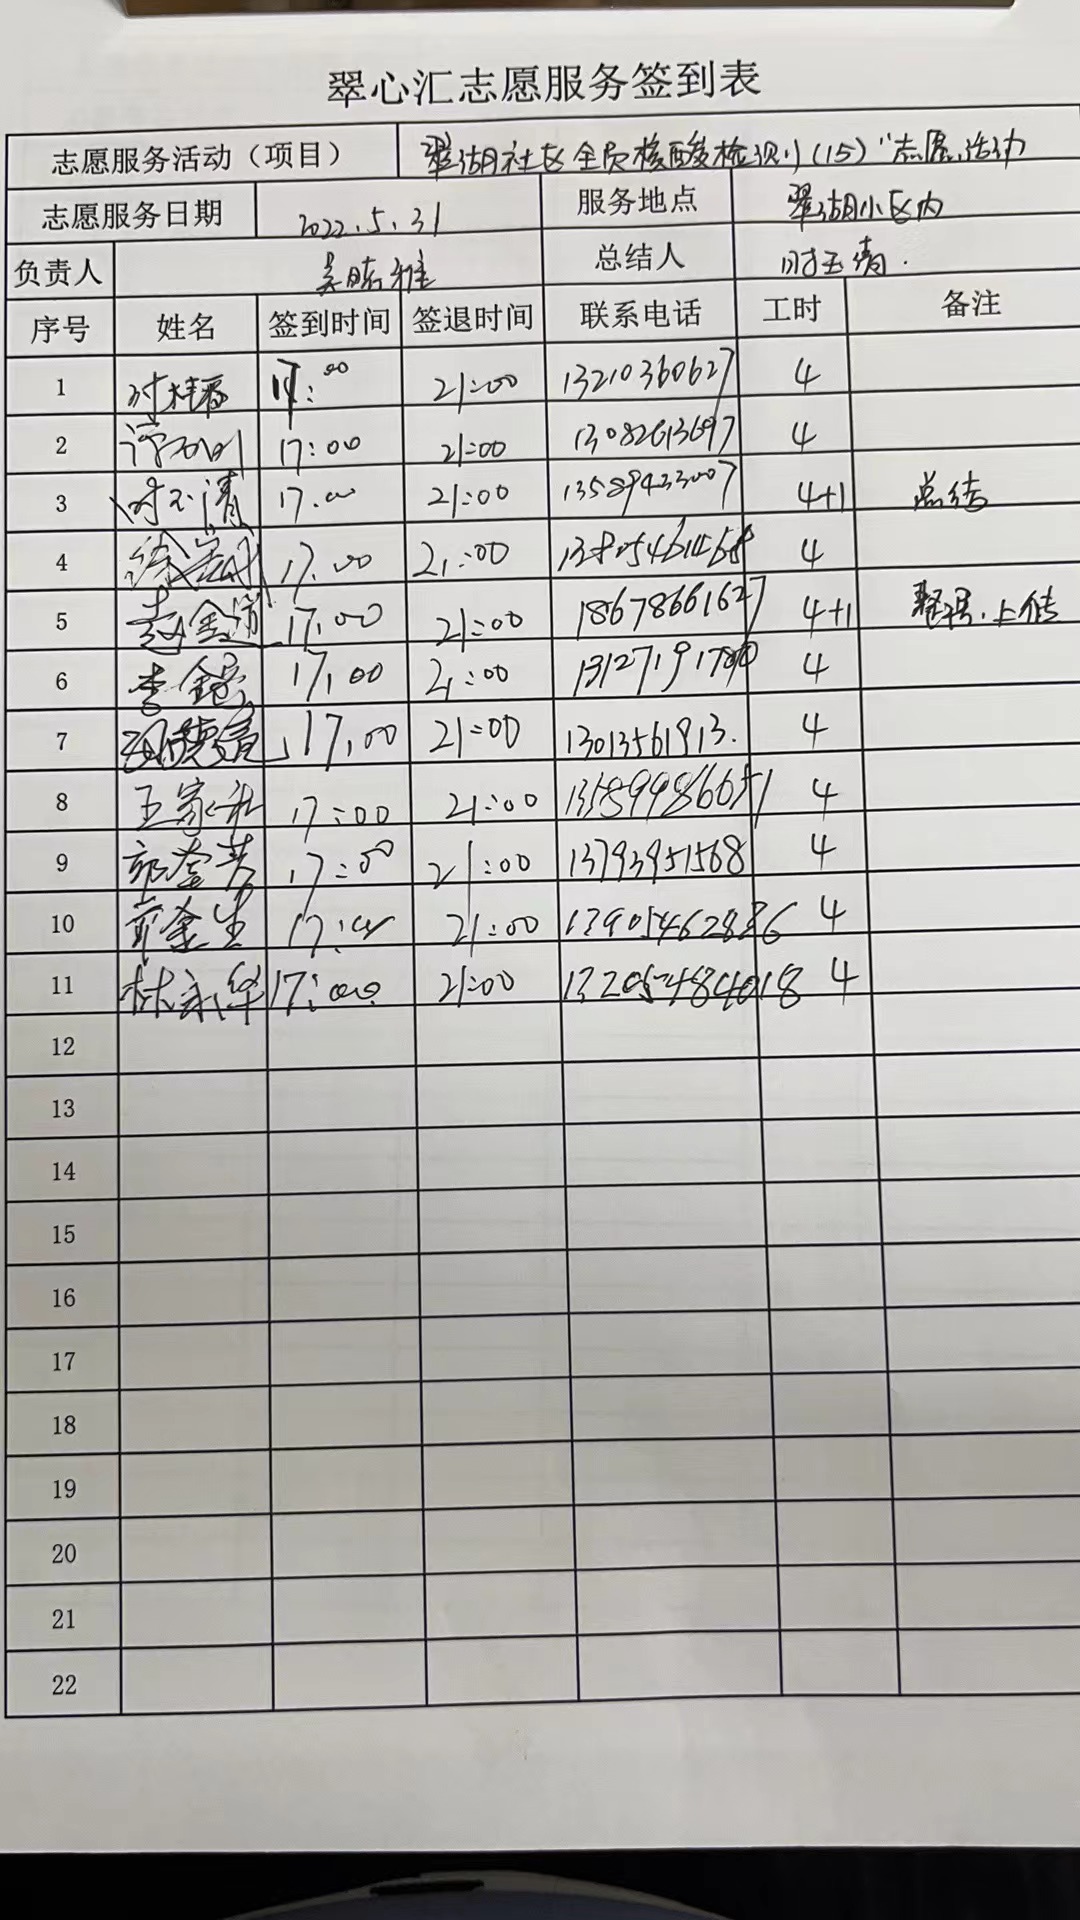 翠心汇志愿服务签到表
志愿服务活动（项目） 翠湖社区全员核酸检测（15）"志愿活动
志愿服务日期 2022.5.31 服务地点 翠湖小区内
负责人 总结人 时玉清.
序号 姓名 签到时间 签退时间 联系电话 工时 备注
1 17:00 21:00 13210360627 4
2 17:00 21:00 13082613697 4
3 时玉清 17.00 21:00 13589433007 4+1 总结
4 17.00 21:00 4
5 17.00 21:00 18678661627 4+1 上传
6 17.00 21:00 4
7 17.00 21:00 13013561913. 4
8 王家礼 17:00 21:00 4
9 17:00 21:00 13793951568 4
10 17:00 21:00 13905462836 4
11 林永华 17:00 21:00 4
12
13
14
15
16
17
18
19
20
21
22